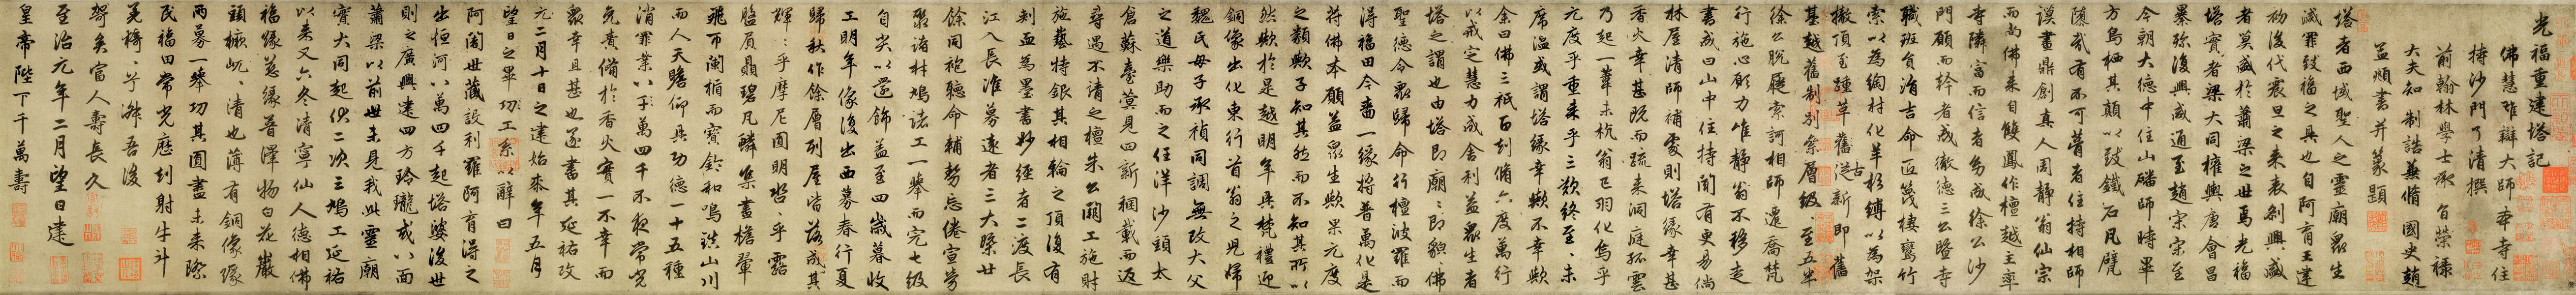 光福重建塔記
佛慧雄辯大師本寺住
持沙門了清撰
前翰林學士承旨榮祿
大夫知制誥兼脩國史趙
孟頫書并篆題
塔者西域聖人之靈廟眾生
滅罪致福之具也自阿育王建
初後代震旦之来表刱興盛
者莫盛於蕭梁之世焉光福
塔寶者梁大同權輿唐會昌
殄復興咸通至趙宋宋至
今朝大德中住山磻師時畢
方鳥栖其顛以致鐵石凡甓
隳裂有不可瞢者住持相師
謨畫鼎創真人周靜翁仙宗
而尚佛来自雙鳳作檀越主率
寺隣富而信者多成徐公沙
門願而幹者成徹德三公暨寺
職班負洎吉命匠篾棲鸞竹
索以為綯材化羊杉縛以為架
撤頂至踵革舊從新即舊
基越舊制別索層級至五半
徐公脫屣索訶相師遷喬梵
行施心願力唯靜翁不移走
書戒曰山中住持闕有更易倘
林屋清師補處則塔緣幸甚
香火幸甚既而疏来洞庭孤雲
乃起一葦未杭翁已羽化烏乎
元度乎重来乎三歎終至未
席溫或謂塔緣幸歟不幸歟
余曰佛三祇百刦脩六度萬行
以戒定慧力成舍利益眾生者
塔之謂也由塔即廟廟即貌佛
聖德令眾歸命行檀波羅而
得福田今啬一緣将普萬化是
符佛本願益眾生歟果元度
之類歟子知其然而不知其所以
然歟於是越明年具梵禮迎
銅像出化東行首翁之兒婦
魏氏母子承禎同調無改大父
之道樂助而之任洋沙頭太
倉蘇臺蓂見四新稛載而返
尋遇不請之檀朱公闢工施財
施藝特銀其相輪之頂復有
刺血為墨書妙經者二渡長
江入長淮募遠者三大檠廿
餘同袍聽命輔勢忘倦宣勞
聚諸材鳩諸工一舉而完七級
自尖以還飾益至四歲暮收
工明年像復出西募春行夏
歸秋作餘層列屋皆落成其
輝輝乎摩尼圓明沓沓乎露
盤屓贔碧凡鱗集畫檐翬
飛而闌楯而寶鈴和鳴山川
而人天瞻仰具功德一十五種
消罪業以千萬四千不夜常光
充賁備於香火實一不幸而
眾幸且甚也遂書其延祐改
元二月十日之建始来年五月
望日之畢功工系以辭曰
阿闍世藏設利羅阿育得之
出恒河以萬四千起塔婆後世
則之廣興建四方玲瓏或八面
蕭梁以前世未見我此靈廟
實大同起仆二次三鳩工延祐
以来又六冬清寧仙人德相佛
福緣慈緣普澤物白花巖
頭橛屼屼清也薄有銅像隊
兩募一舉功其圓盡未来際
民福田常光應刻射牛斗
羌椅兮舜吾後
矣富人壽長久
至治元年二月望日建
皇帝陛下千萬壽